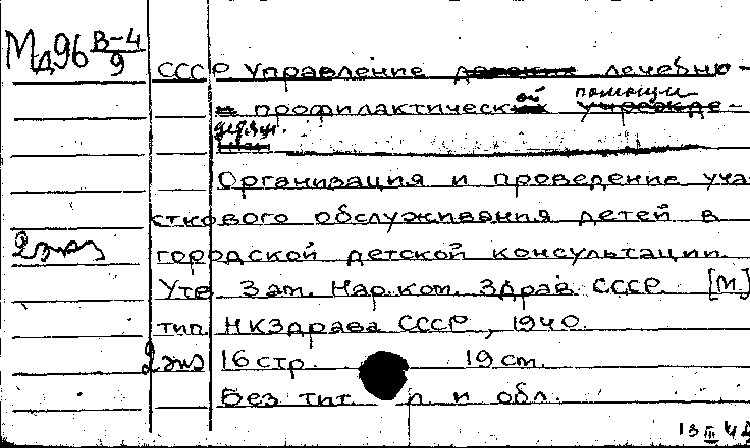 Мд96 В-4/9
СССР Управление детских лечебно-
профилактической помощи учрежде-
детям.
Организация и проведение уча-
сткового обслуживания детей в
2 экз городской детской консультации.
Утв. Зам. Нар.ком. Здрав. СССР. [М.]
тип. НКЗдрава СССР, 1940.
2 экз 16 стр. 19 см.
Без тит. л. и обл.
13 III 41